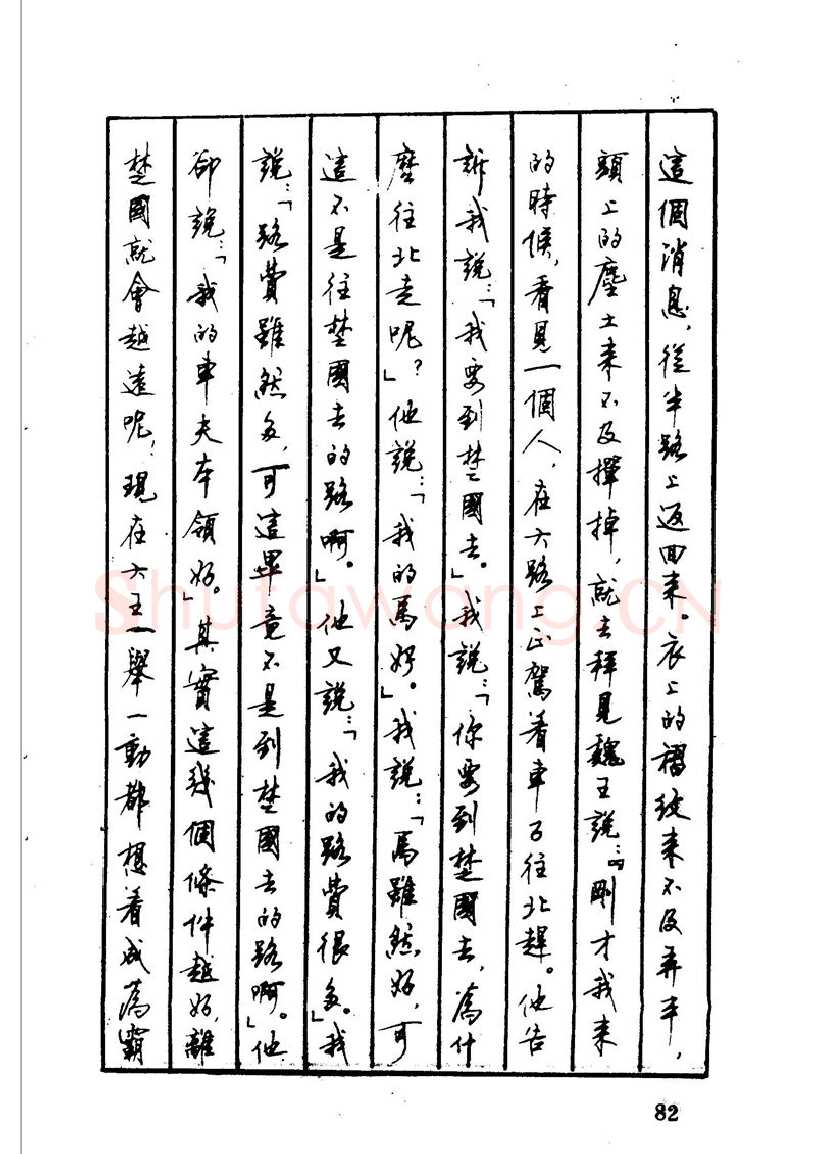 這個消息,從半路上返回來。衣上的褶紋來不及弄平,
頭上的塵土來不及揮掉,就去拜見魏王說:『剛才我來
的時候,看見一個人,在大路上正駕着車子往北趕。他告
訴我說:「我要到楚國去。」我說:「你要到楚國去,為什
麼往北走呢?」他說:「我的馬好。」我說:「馬雖然好,可
這不是往楚國去的路啊。」他又說:「我的路費很多。」我
說:「路費雖然多,可這畢竟不是到楚國去的路啊。」他
卻說:「我的車夫本領好。」其實這幾個條件越好,離
楚國就會越遠呢?現在大王一舉一動都想着成為霸
82
Shufawang.CN